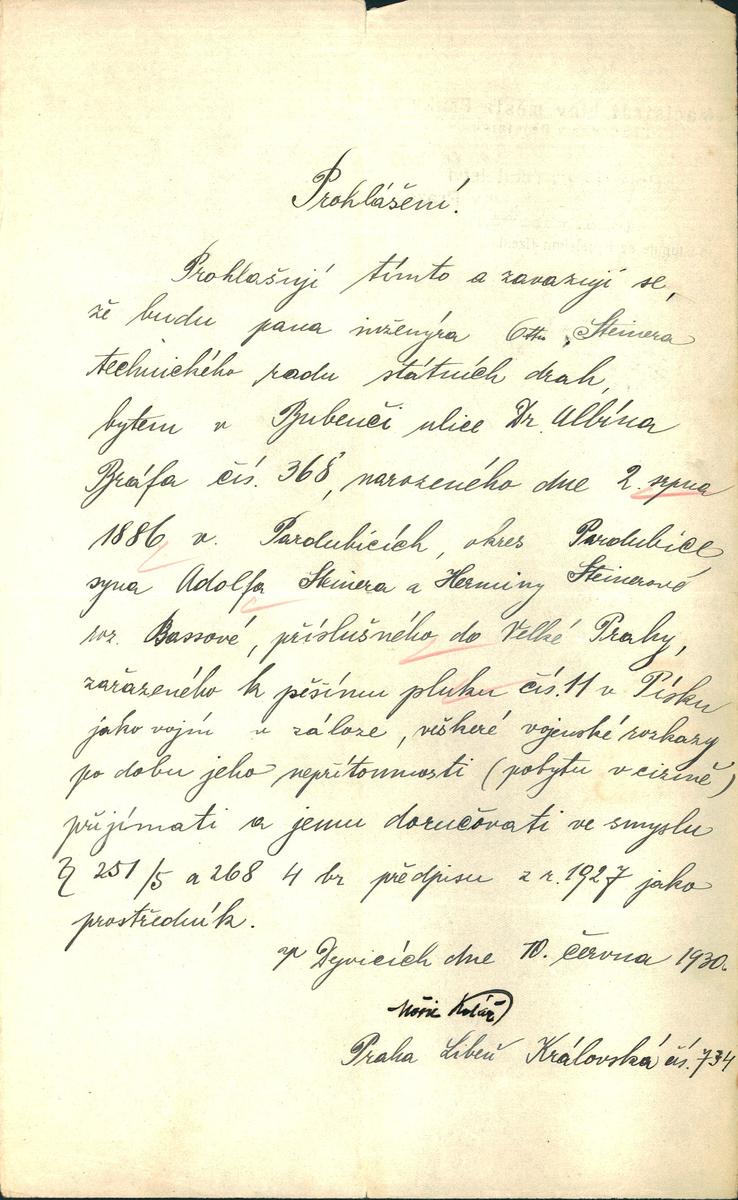 Prohlášení.
Prohlašuji tímto a zavazuji se,
že budu pana inženýra Otto Steinera
technického radu státních drah,
bytem v Bubenči ulice Dr. Albína
Bráfa čís. 368, narozeného dne 2. srpna
1886 v Pardubicích, okres Pardubice
syna Adolfa Steinera a Herminy Steinerové
roz. Bassové, příslušného do Velké Prahy,
zařazeného k pěšímu pluku čís. 11 v Písku
jako vojín v záloze, veškeré vojenské rozkazy
po dobu jeho nepřítomnosti (pobytu v cizině)
přijímati a jemu doručovati ve smyslu
§ 251/5 a 268 4 br předpisu z r. 1927 jako
prostředník.
V Dejvicích dne 10. června 1930.
Kolář
Praha Libeň Královská čís. 734